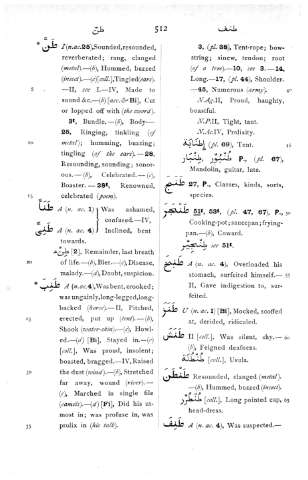 طنّ 512 طنف
طنّ I (n.ac.25), Sounded, resounded,
reverberated; rang, clanged
(metal).—(b), Hummed, buzzed
(insect).—(c) [coll.], Tingled (ears).
—II, see I.—IV, Made to
sound &c.—(b) [acc. & Bi], Cut
or lopped off with (the sword).
3f, Bundle,—(b), Body—
26, Ringing, tinkling (of
metal); humming, buzzing;
tingling (of the ears).—28,
Resounding, sounding; sonor-
ous.—(b), Celebrated.—(c),
Boaster.—38f, Renowned,
celebrated (poem).
طنأ A (n. ac. 1) Was ashamed,
confused.—IV,
طنئ A (n. ac. 4) Inclined, bent
towards.
[2]. Remainder, last breath
of life.—(b), Bier.—(c), Disease,
malady.—(d), Doubt, suspicion.
طنب A (n. ac. 4), Was bent, crooked;
was ungainly, long-legged, long-
backed (horse).—II, Pitched,
erected, put up (tent).—(b),
Shook (water-skin).—(c), Howl-
ed.—(d) [Bi], Stayed in.—(e)
[coll.], Was proud, insolent;
boasted, bragged.—IV, Raised
the dust (wind).—(b), Stretched
far away, wound (river).—
(c), Marched in single file
(camels).—(d) [Fi], Did his ut-
most in; was profuse in, was
prolix in (his talk).
3, (pl. 38), Tent-rope; bow-
string; sinew, tendon; root
(of a tree).—10, see 3.—14,
Long.—17, (pl. 44), Shoulder.
—45, Numerous (army).
N.Ag.II, Proud, haughty,
boastful.
N.P.II, Tight, taut.
N.Ac.IV, Prolixity.
(pl. 69), Tent.
طنبور, طنبار P., (pl. 67),
Mandolin, guitar, lute.
طنج 27, P., Classes, kinds, sorts,
species.
طنجر 51f, 53f, (pl. 47, 67), P.,
Cooking-pot; saucepan; frying-
pan.—(b), Coward.
طنجير see 51f.
طنخ A (n. ac. 4), Overloaded his
stomach, surfeited himself.—
II, Gave indigestion to, sur-
feited.
طنز U (n. ac. 1) [Bi], Mocked, scoffed
at, derided, ridiculed.
طنش II [coll.], Was silent, shy.—
(b), Feigned deafness.
[coll.], Uvula.
طنطن Resounded, clanged (metal).
—(b), Hummed, buzzed (insect).
طنطور [coll.], Long pointed cup,
head-dress.
طنف A (n. ac. 4), Was suspected.—